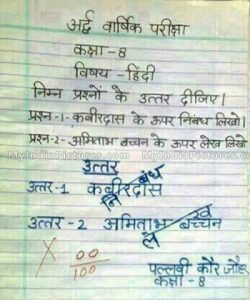 अर्द्ध वार्षिक परीक्षा
कक्षा - 8
विषय - हिंदी
निम्न प्रश्नों के उत्तर दीजिए।
प्रश्न-1- कबीरदास के ऊपर निबंध लिखो।
प्रश्न-2- अमिताभ बच्चन के ऊपर लेख लिखो
MyIndiaPictures.com
उत्तर
उत्तर-1 कबीरदास
निबंध
उत्तर-2 अमिताभ बच्चन
लेख
X 00
100
पल्लवी कौर जौहर
कक्षा - 8